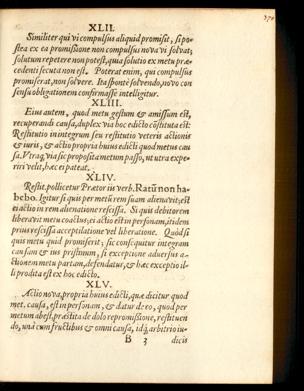 XLII.
Similiter qui vi compulsus aliquid promisit, si po-
stea ex ea promißione non compulsus nova vi solvat,
solutum repetere non potest, quia solutio ex metu præ-
cedenti secuta non est. Poterat enim, qui compulsus
promiserat, non solvere. Ita sponte solvendo, novo con
sensu obligationem confirmasse intelligitur.
XLIII.
Eius autem, quod metu gestum & amissum est,
recuperandi causa, duplex via hoc edicto est:
Restitutio in integrum seu restitutio veteris actionis
& iuris, & actio propria huius edicti quod metus cau
sa. Utraq, via sic proposita metum passo, ut utra expe-
riri velit, hæc ei pateat.
XLIV.
Restit. pollicetur Prætor iis verb. Ratū non ha-
bebo. Igitur si quis per metū rem suam alienavit; est
ei actio in rem alienatione rescissa. Si quis debitorem
liberavit metu coactus; ei actio est in personam, itidem
prius rescissa acceptilatione vel liberatione. Quòd si
quis metu quid promiserit; sic consequitur integram
causam & ius pristinum, si exceptione adversus a-
ctionem metu partam, defendatur, & hæc exceptio il-
li prodita est ex hoc edicto.
XLV.
Actio nova, propria huius edicti, quæ dicitur quod
met. causa, est in personam, & datur de eo, quod per
metum abest, præstita de dolo repromißione, restituen
do, unà cum fructibus & omni causa, idq, arbitrio iu-
B 3 dicis